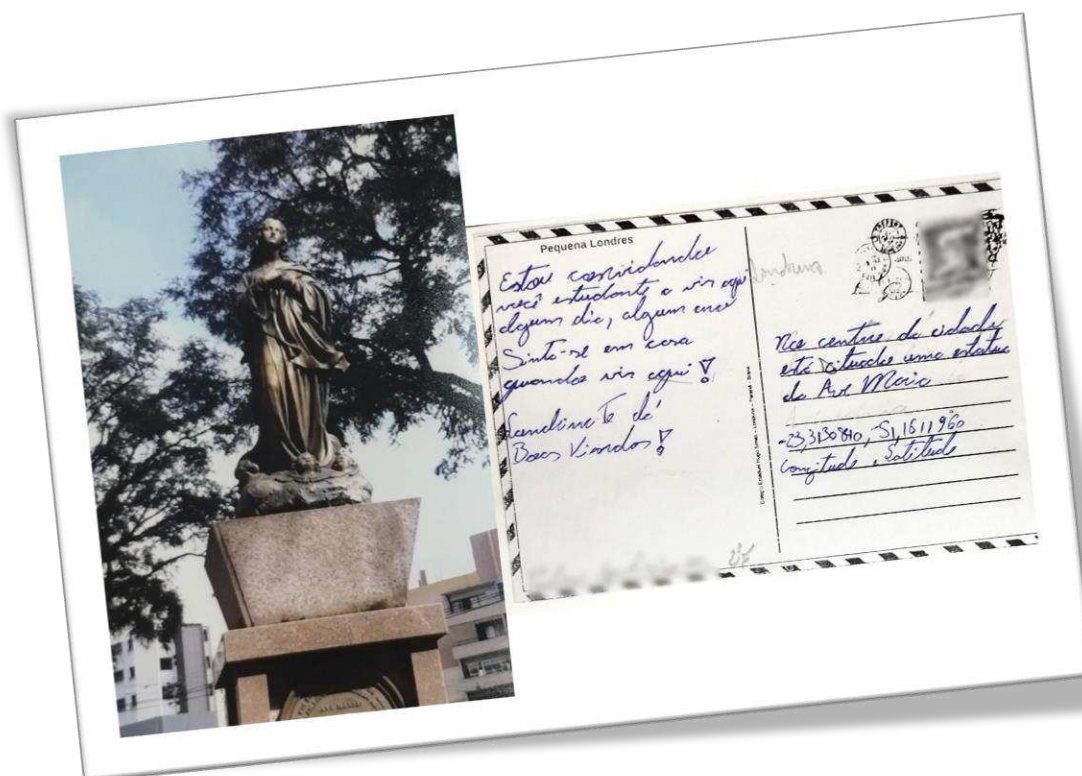 Pequena Londres
Estou convidando
você estudante a vir aqui
algum dia, algum ano
Sinta-se em casa
quando vir aqui!
Londrina Te dá
Boas Vindas!
Londrina
No centro da cidade
está situado uma estatua
da Ave Maria
-23,3130840, 51,1611960
Longitude, Latitude
Colégio Estadual Hugo Simas - Londrina - Paraná - Brasil